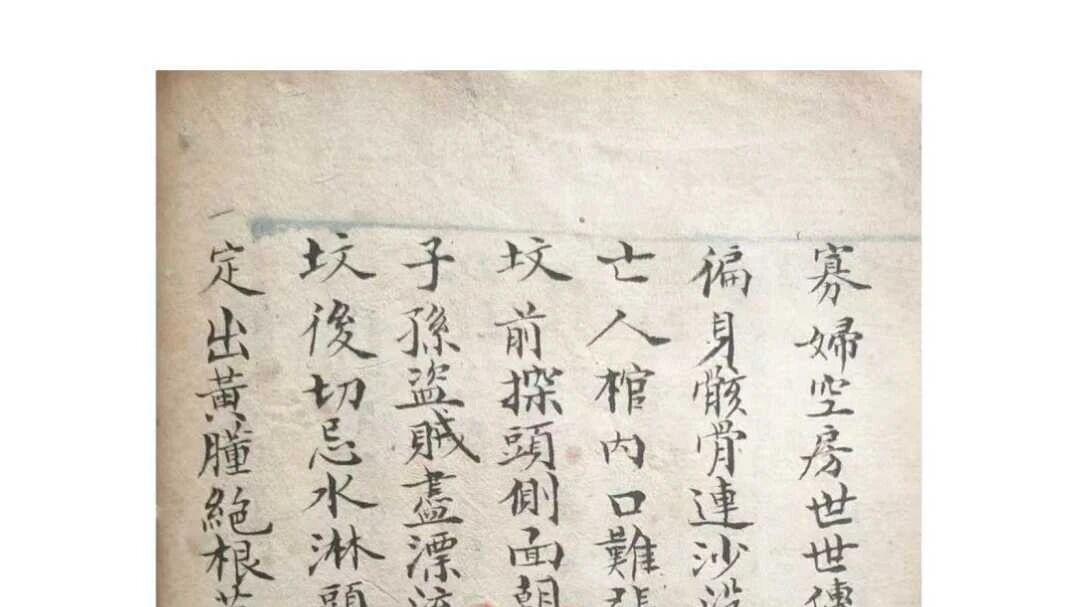 寡婦空房世世傳
徧身骸骨連沙沒
亡人棺内口難
坟前探頭側面朝
子孫盜賊盡漂流
坟後切忌水淋頭
定出黃腫絶根